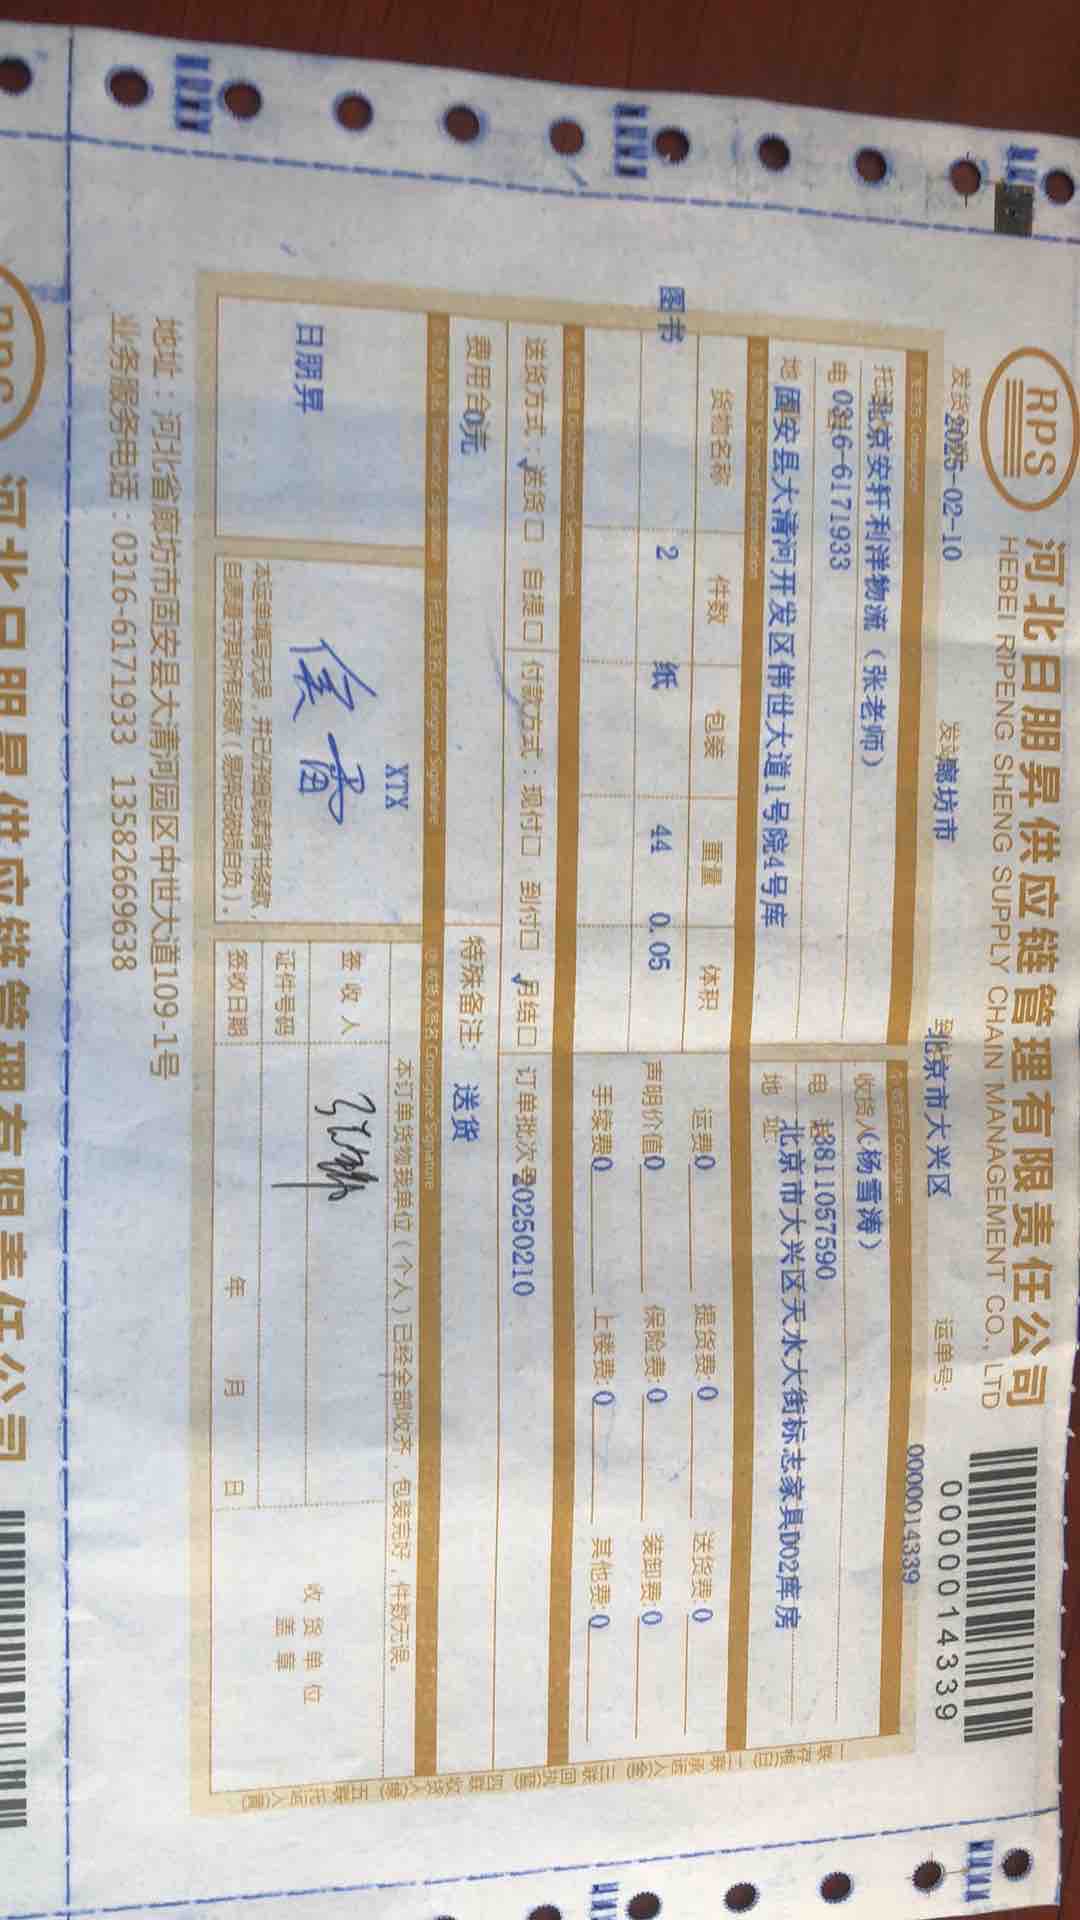 RPS
河北日朋昇供应链管理有限责任公司
HEBEI RIPENG SHENG SUPPLY CHAIN MANAGEMENT CO., LTD
0000014339
发货 2025-02-10 发站 廊坊市 到 北京市大兴区 运单号: 0000014339
Consignor
Consignee
托 北京安轩利洋物流（张老师）
收货人（杨雪涛）
电 0316-6171933
电 13811057590
地 固安县大清河开发区伟世大道1号院4号库
地址: 北京市大兴区天水大街标志家具D02库房
货物名称 件数 包装 重量 体积
图书 2 纸 44 0.05
运费 0 提货费: 0 送货费: 0
声明价值 0 保险费: 0 装卸费: 0
手续费 0 上楼费: 0 其他费: 0
送货方式: 送货□ 自提□ 付款方式: 现付□ 到付□ 月结□ 订单批次号 20250210
费用合 0元
特殊备注: 送货
Consignor Signature
Consignee Signature
日朋昇
XTX
侯雷
本运单填写无误，并已仔细阅读背书条款，
自愿遵守其所有条款（易碎品破损自负）。
本订单货物我单位（个人）已经全部收齐，包装完好，件数无误。
签收人
证件号码
签收日期 年 月 日
收货单位
盖章
地址：河北省廊坊市固安县大清河园区中世大道109-1号
业务服务电话：0316-6171933 13582669638
RPS
河北日朋昇供应链管理有限责任公司